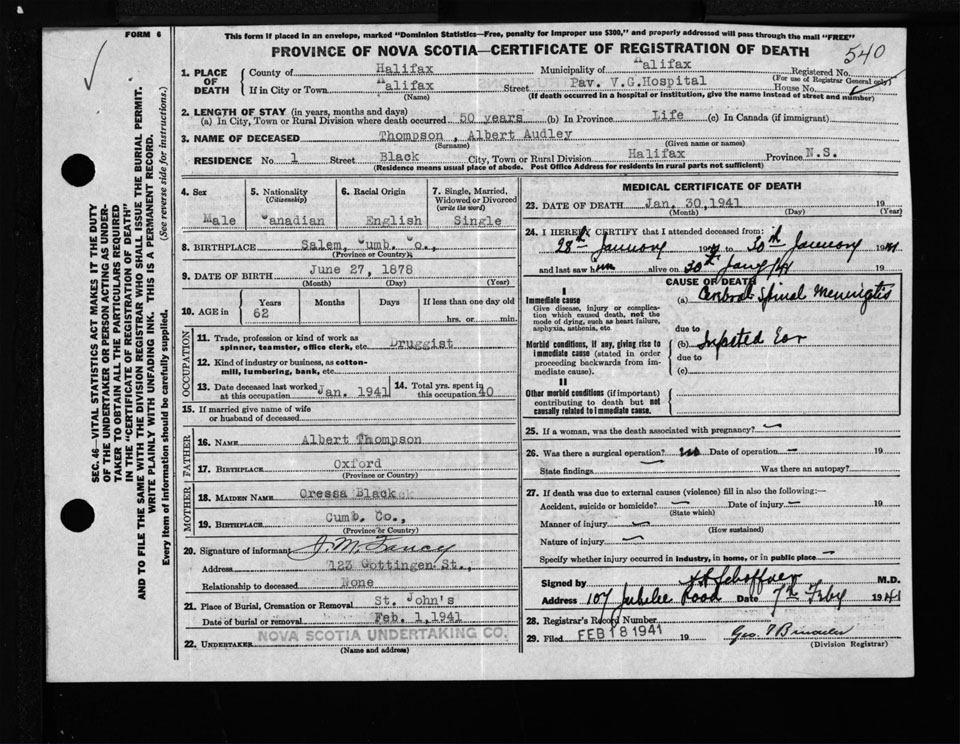 FORM 6
This form if placed in an envelope, marked "Dominion Statistics—Free, penalty for improper use $300," and properly addressed will pass through the mail "FREE"
PROVINCE OF NOVA SCOTIA—CERTIFICATE OF REGISTRATION OF DEATH
540
1. PLACE OF DEATH
County of Halifax Municipality of Halifax Registered No.
(For use of Registrar General only)
If in City or Town Halifax Street Pav. V.G.Hospital House No.
(Name) (If death occurred in a hospital or institution, give the name instead of street and number)
2. LENGTH OF STAY (in years, months and days)
(a) In City, Town or Rural Division where death occurred 50 years (b) In Province Life (c) In Canada (if immigrant)
3. NAME OF DECEASED Thompson , Albert Audley
(Surname) (Given name or names)
RESIDENCE No. 1 Street Black City, Town or Rural Division Halifax Province N.S.
(Residence means usual place of abode. Post Office Address for residents in rural parts not sufficient)
4. Sex Male
5. Nationality (Citizenship) Canadian
6. Racial Origin English
7. Single, Married, Widowed or Divorced (write the word) Single
8. BIRTHPLACE Salem, Cumb. Co.,
(Province or Country)
9. DATE OF BIRTH June 27, 1878
(Month) (Day) (Year)
10. AGE in Years 62 Months Days If less than one day old hrs. or min.
OCCUPATION
11. Trade, profession or kind of work as spinner, teamster, office clerk, etc. Druggist
12. Kind of industry or business, as cotton-mill, lumbering, bank, etc.
13. Date deceased last worked at this occupation Jan. 1941
14. Total yrs. spent in this occupation 40
15. If married give name of wife or husband of deceased
FATHER
16. NAME Albert Thompson
17. BIRTHPLACE Oxford
(Province or Country)
MOTHER
18. MAIDEN NAME Oressa Black
19. BIRTHPLACE Cumb. Co.,
(Province or Country)
20. Signature of informant J. M. Fancy
Address 123 Gottingen St.,
Relationship to deceased None
21. Place of Burial, Cremation or Removal St. John's
Date of burial or removal Feb. 1,1941
22. UNDERTAKER NOVA SCOTIA UNDERTAKING CO.
(Name and address)
MEDICAL CERTIFICATE OF DEATH
23. DATE OF DEATH Jan. 30,1941 19
(Month) (Day) (Year)
24. I HEREBY CERTIFY that I attended deceased from:
28th January 19 to 30th January 1941
and last saw him alive on 30th Jany/41 19
CAUSE OF DEATH
I
Immediate cause
Give disease, injury or complication which caused death, not the mode of dying, such as heart failure, asphyxia, asthenia, etc
(a) Cerebral Spinal Meningitis
due to
Morbid conditions, if any, giving rise to immediate cause (stated in order proceeding backwards from immediate cause).
(b) Infected Ear
due to
(c)
II
Other morbid conditions (if important) contributing to death but not causally related to immediate cause.
25. If a woman, was the death associated with pregnancy?
26. Was there a surgical operation? no Date of operation 19
State findings Was there an autopsy?
27. If death was due to external causes (violence) fill in also the following:—
Accident, suicide or homicide? Date of injury 19
(State which)
Manner of injury
(How sustained)
Nature of injury
Specify whether injury occurred in industry, in home, or in public place
Signed by M.D.
Address 107 Jubilee Road Date 7th Feby 1941
28. Registrar's Record Number
29. Filed FEB 18 1941 19
(Division Registrar)
SEC. 46—VITAL STATISTICS ACT MAKES IT THE DUTY
OF THE UNDERTAKER OR PERSON ACTING AS UNDER-
TAKER TO OBTAIN ALL THE PARTICULARS REQUIRED
IN THE "CERTIFICATE OF REGISTRATION OF DEATH"
AND TO FILE THE SAME WITH THE DIVISION REGISTRAR WHO SHALL ISSUE THE BURIAL PERMIT.
WRITE PLAINLY WITH UNFADING INK. THIS IS A PERMANENT RECORD.
Every item of information should be carefully supplied. (See reverse side for instructions.)